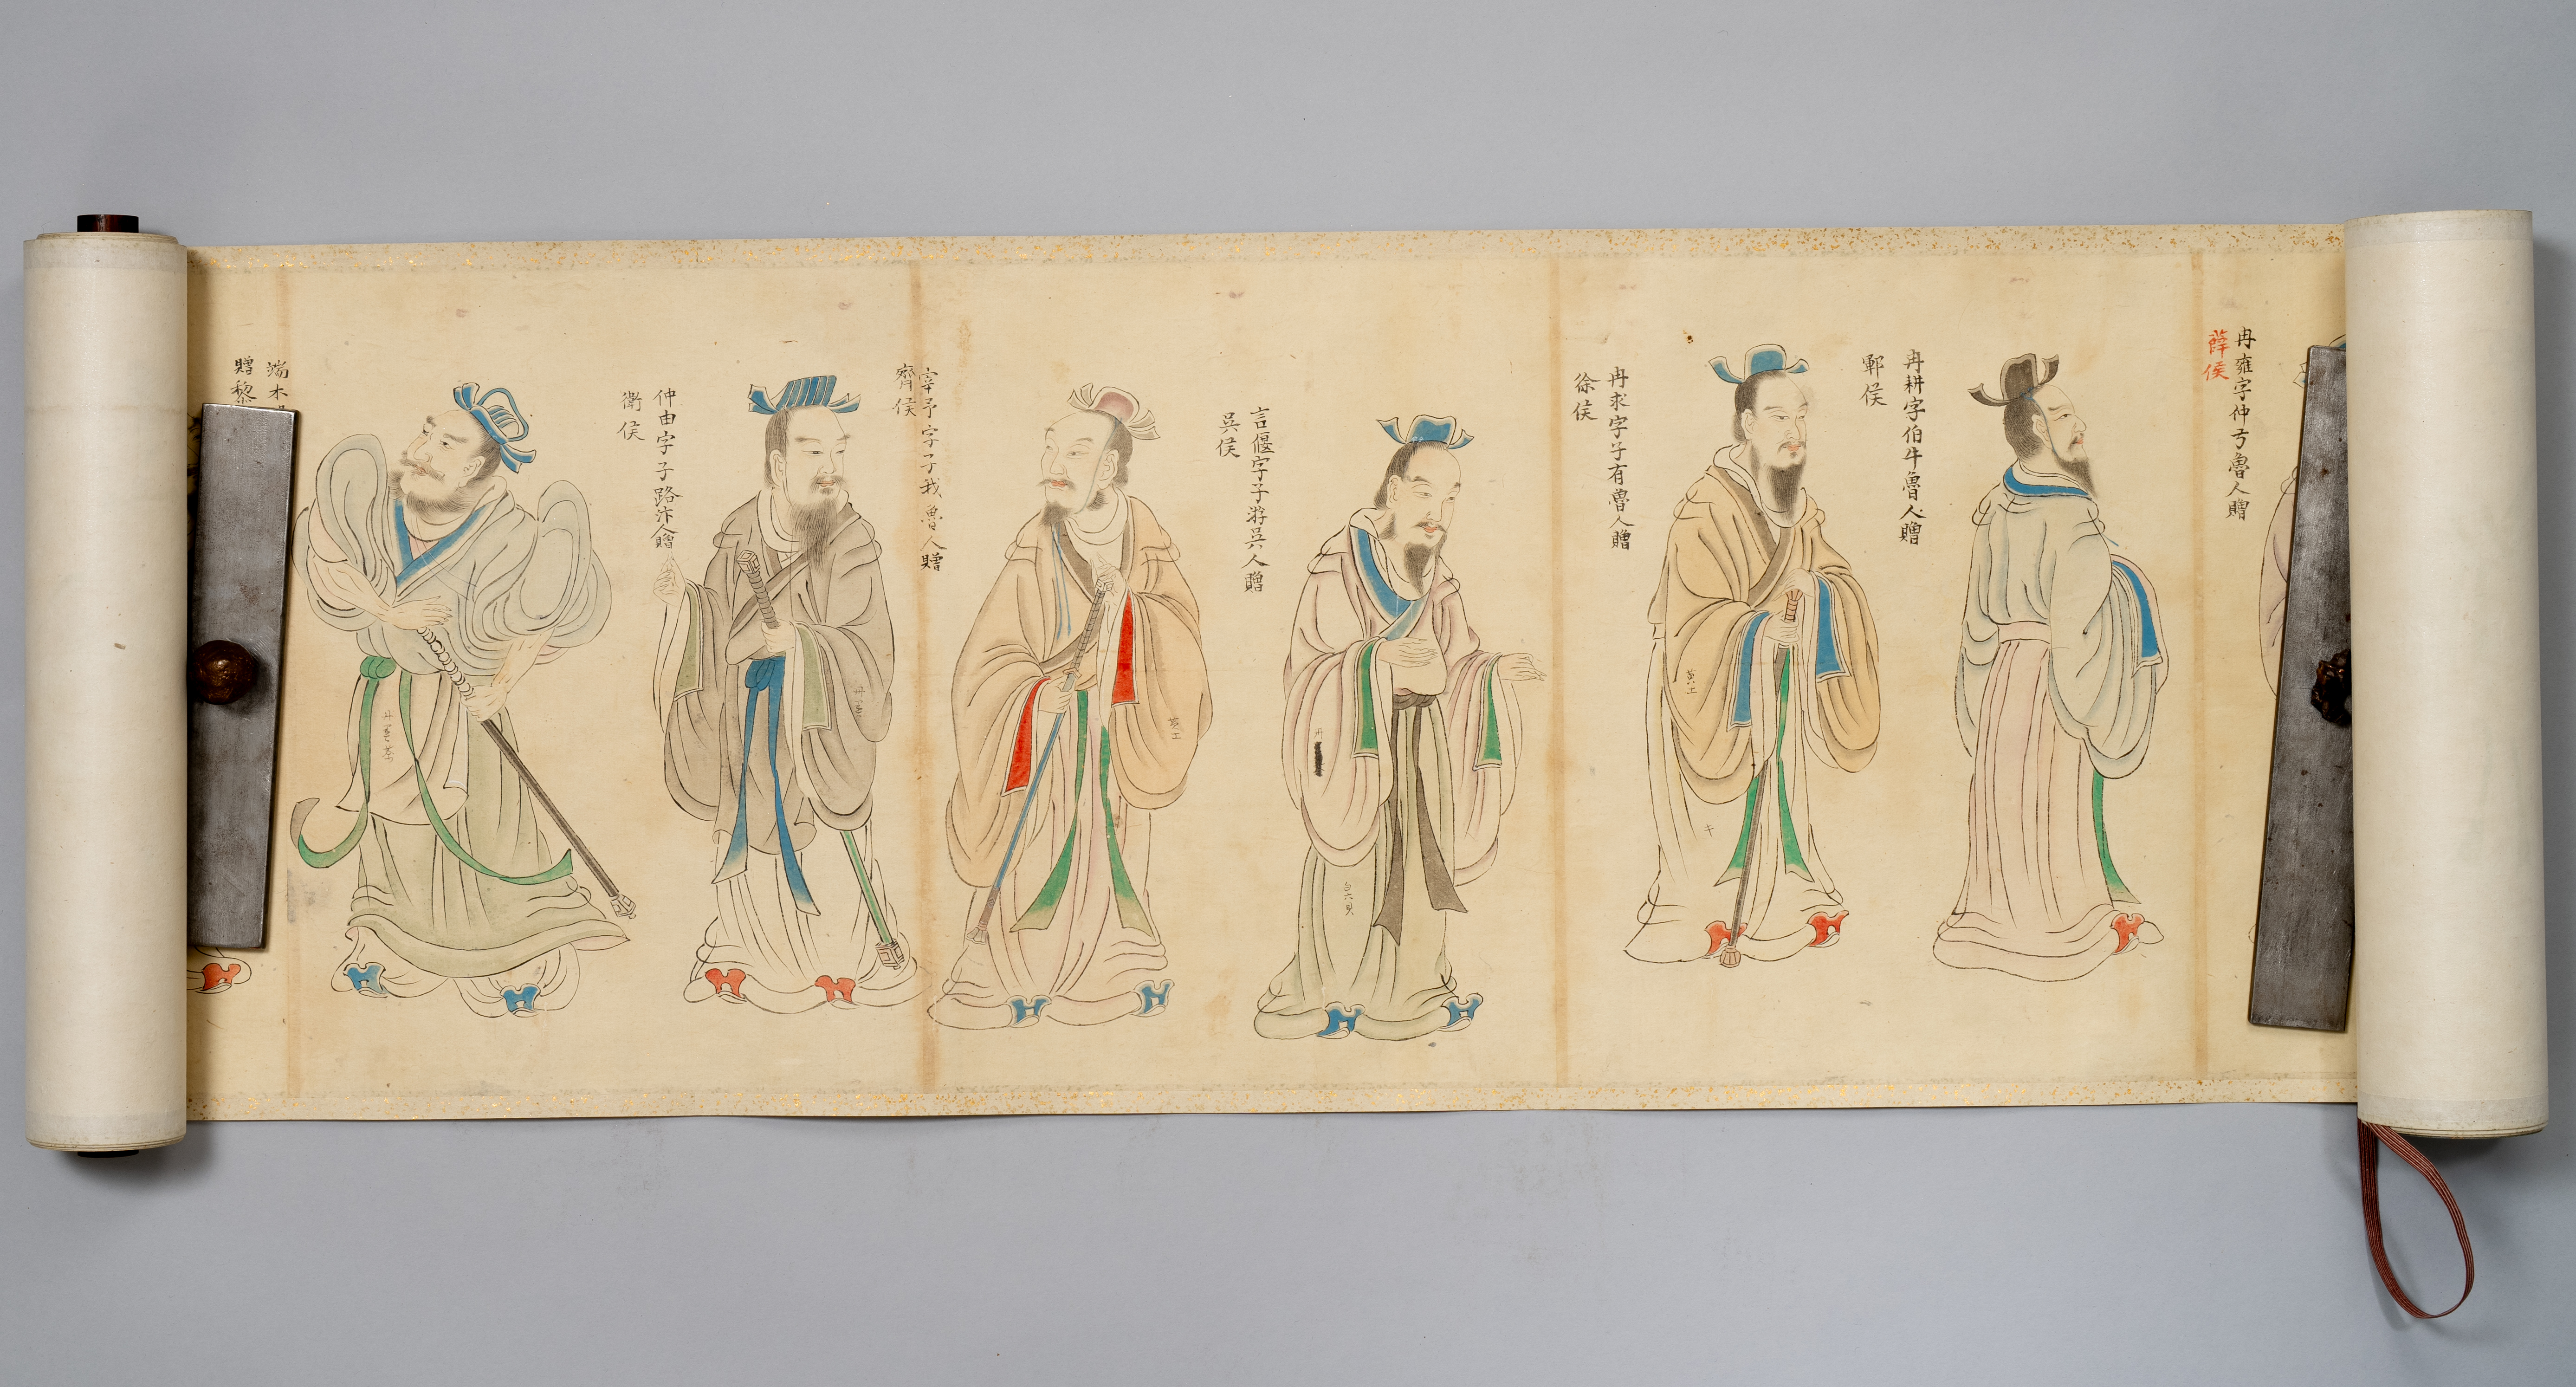 冉雍字仲弓魯人贈
薛侯
冉耕字伯牛魯人贈
鄆侯
冉求字子有魯人贈
徐侯
黄土
言偃字子游吳人贈
吳侯
白六
宰予字子我魯人贈
齊侯
黄土
仲由字子路汴人贈
衛侯
丹
端木
贈黎